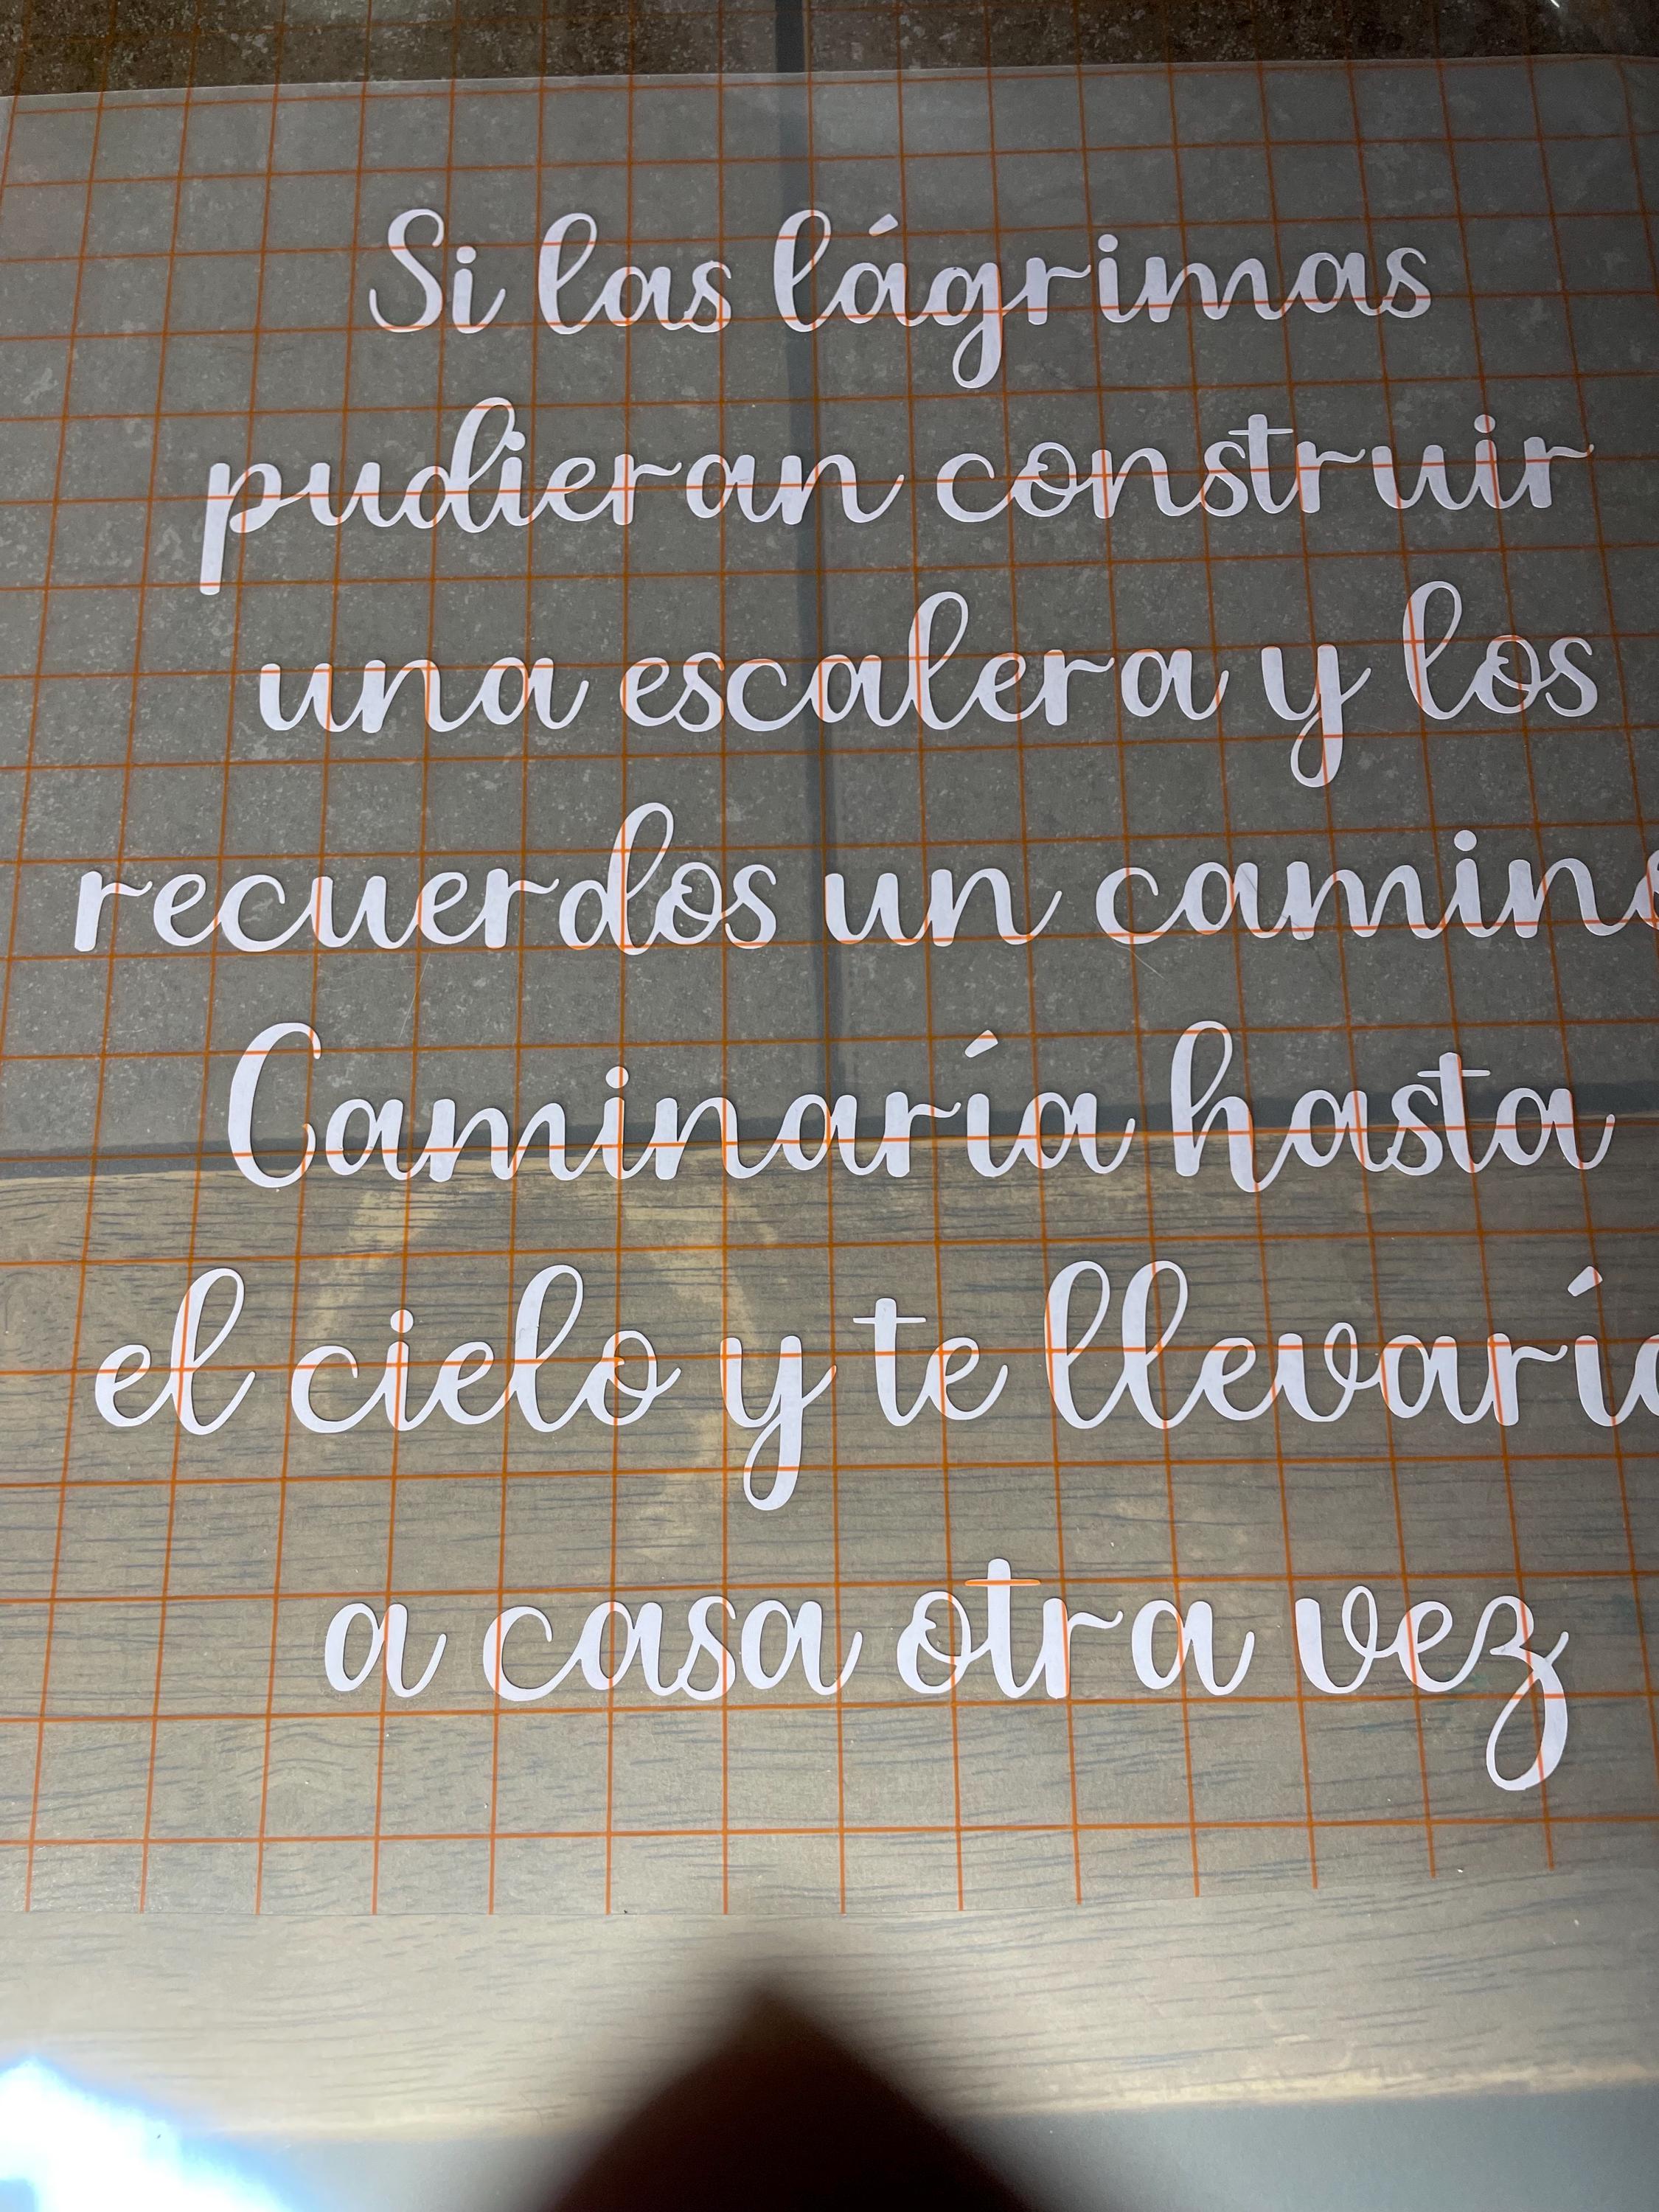 Si las lágrimas
pudieran construir
una escalera y los
recuerdos un camino
Caminaría hasta
el cielo y te llevaría
a casa otra vez